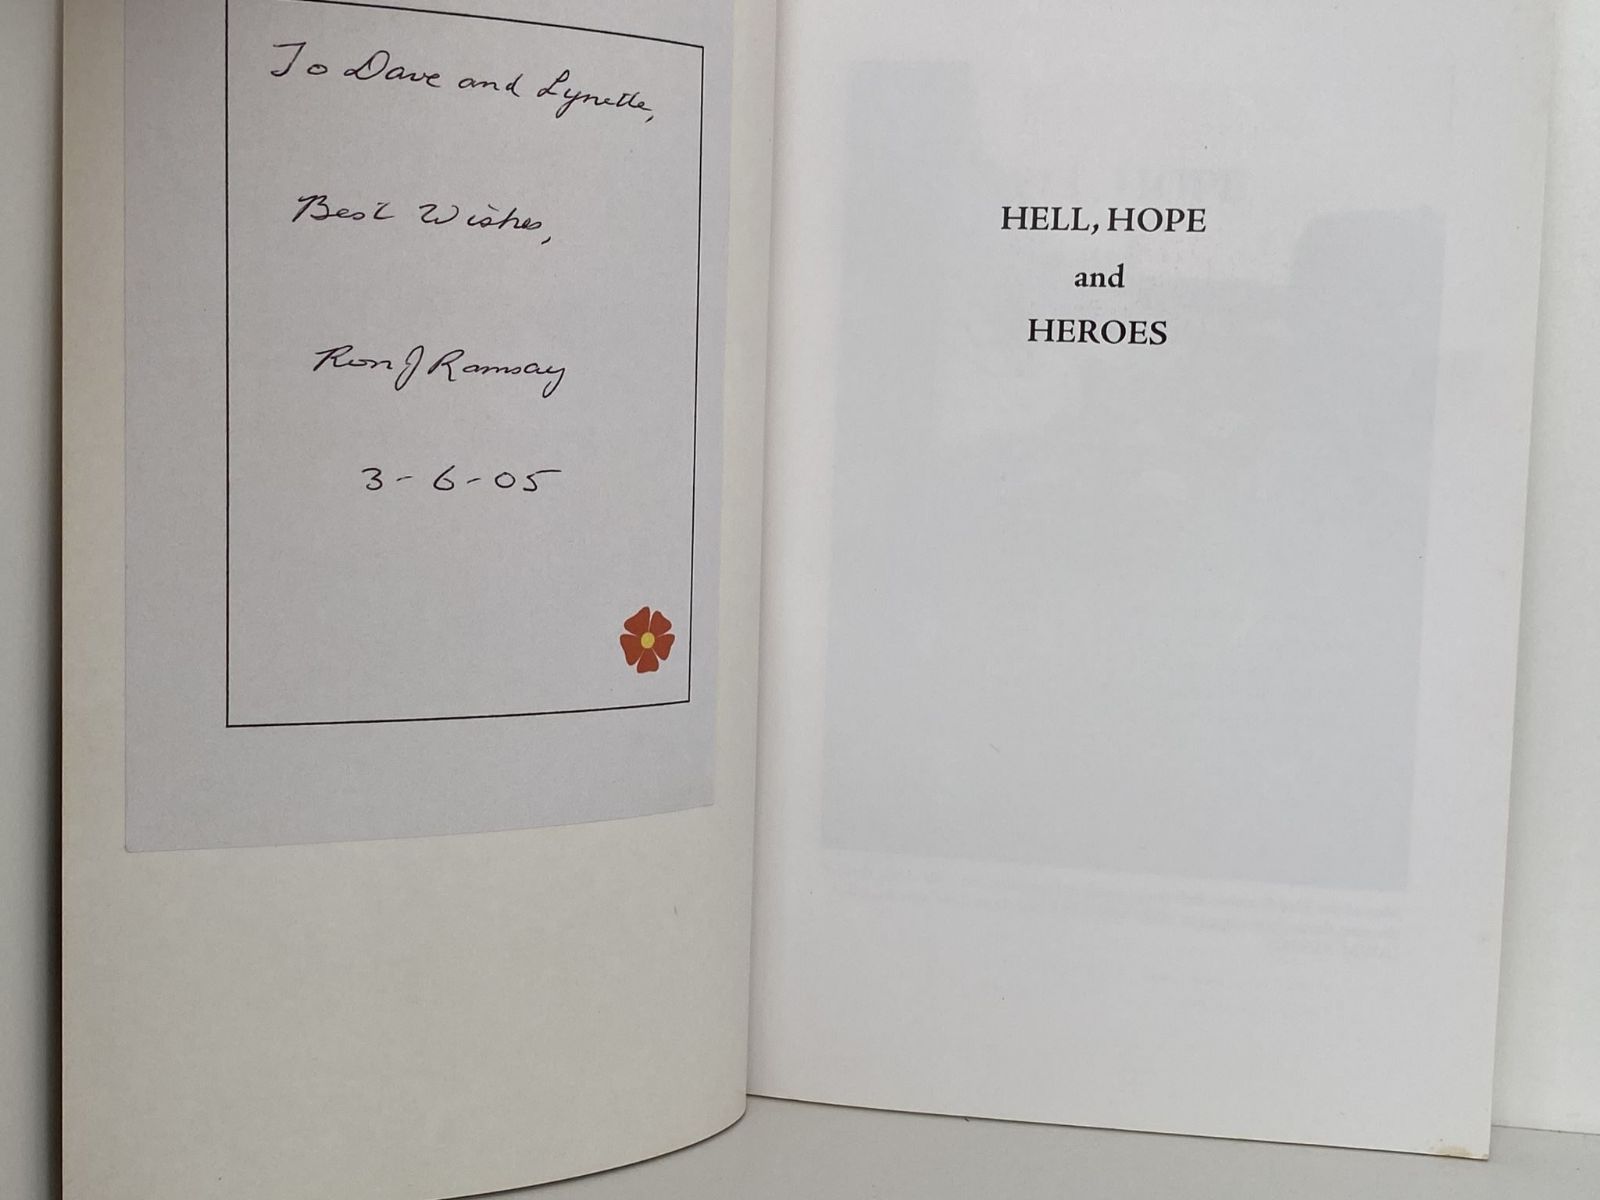 To Dave and Lynette,
Best Wishes,
Ron J Ramsay
3-6-05
HELL, HOPE
and
HEROES